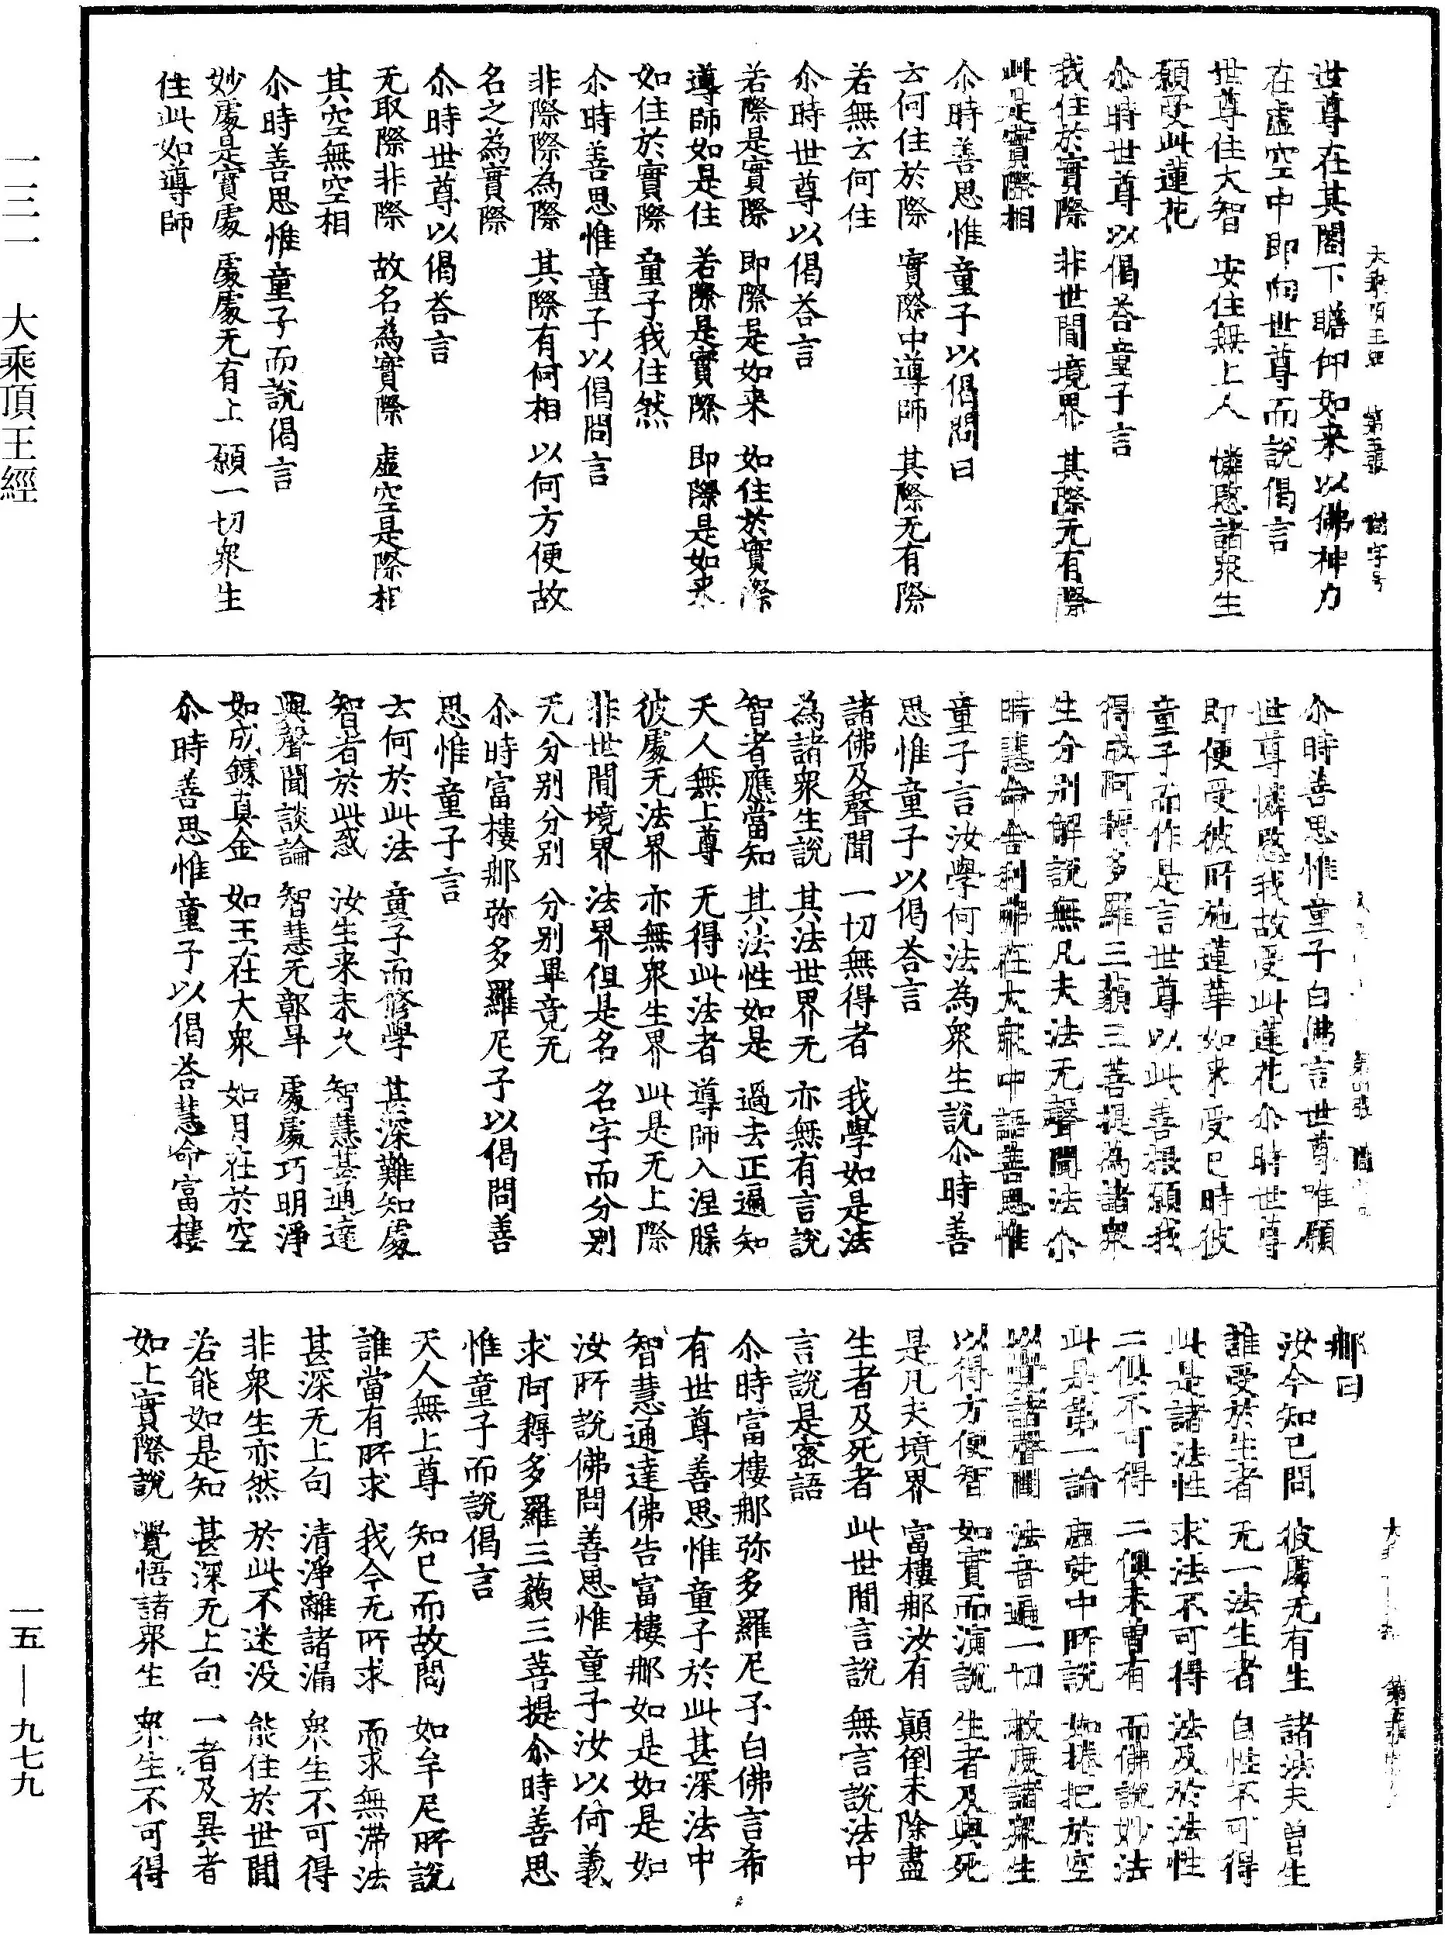 一三一　大乘頂王經
一五—九七九
大乘頂王經　第五張
世尊在其閣下瞻仰如来以佛神力
在虛空中即向世尊而說偈言
世尊住大智　安住無上人　憐愍諸衆生
願受此蓮花
尒時世尊以偈荅童子言
我住於實際　非世間境界　其際无有際
此是實際相
尒時善思惟童子以偈問曰
云何住於際　實際中導師　其際无有際
若無云何住
尒時世尊以偈荅言
若際是實際　即際是如来　如住於實際
導師如是住　若際是實際　即際是如来
如住於實際　童子我住然
尒時善思惟童子以偈問言
非際際為際　其際有何相　以何方便故
名之為實際
尒時世尊以偈荅言
无取際非際　故名為實際　虛空是際相
其空無空相
尒時善思惟童子而說偈言
妙處是實處　處處无有上　願一切衆生
住此如導師
尒時善思惟童子白佛言世尊唯願
世尊憐愍我故受此蓮花尒時世尊
即便受彼所施蓮華如来受已時彼
童子而作是言世尊以此善根願我
得成阿耨多羅三藐三菩提為諸衆
生分別解說無凡夫法无聲聞法尒
時慧命舍利弗在大衆中語善思惟
童子言汝學何法為衆生說尒時善
思惟童子以偈荅言
諸佛及聲聞　一切無得者　我學如是法
為諸衆生說　其法世界无　亦無有言說
智者應當知　其法性如是　過去正遍知
天人無上尊　无得此法者　導師入涅膟
彼處无法界　亦無衆生界　此是无上際
非世間境界　法界但是名　名字而分別
无分別分別　分別畢竟无
尒時富樓那弥多羅尼子以偈問善
思惟童子言
云何於此法　童子而修學　甚深難知處
智者於此惑　汝生来未久　智慧甚通達
與聲聞談論　智慧无鄣㝵　處處巧明淨
如成鍊真金　如王在大衆　如月在於空
尒時善思惟童子以偈荅慧命富樓
那曰
汝今知已問　彼處无有生　諸法夫曽生
誰受於生者　无一法生者　自性不可得
此是諸法性　求法不可得　法及於法性
二俱不可得　二俱未曽有　而佛說妙法
此是第一論　鹿苑中所說　如捲把於空
以誓諸聲聞　法音遍一切　救度諸衆生
以得方便智　如實而演說　生者及與死
是凡夫境界　富樓那汝有　顛倒未除盡
生者及死者　此世間言說　無言說法中
言說是密語
尒時富樓那弥多羅尼子白佛言希
有世尊善思惟童子於此甚深法中
智慧通達佛告富樓那如是如是如
汝所說佛問善思惟童子汝以何義
求阿耨多羅三藐三菩提尒時善思
惟童子而說偈言
天人無上尊　知已而故問　如牟尼所說
誰當有所求　我今无所求　而求無滯法
甚深无上句　清淨離諸漏　衆生不可得
非衆生亦然　於此不迷没　能住於世間
若能如是知　甚深无上句　一者及異者
如上實際說　覺悟諸衆生　衆生不可得